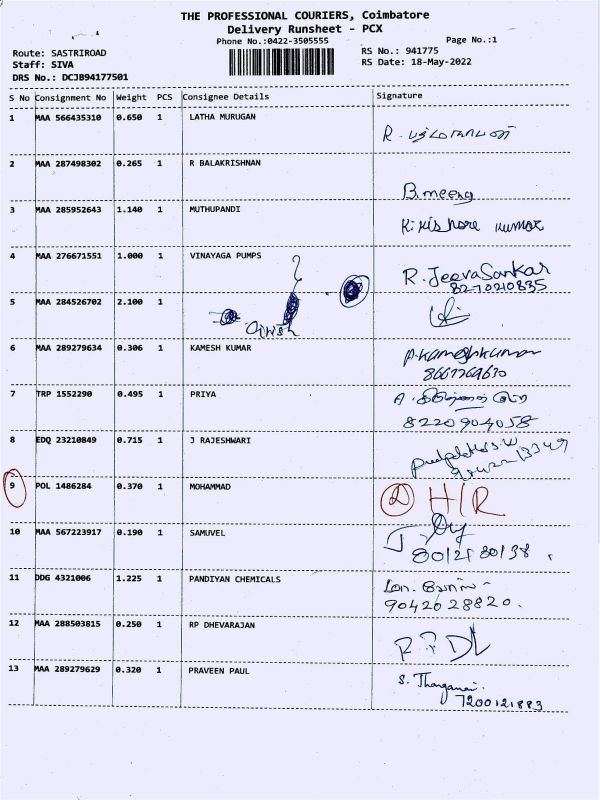 THE PROFESSIONAL COURIERS, Coimbatore
Delivery Runsheet - PCX
Phone No.:0422-3505555
Page No.:1
Route: SASTRIROAD
Staff: SIVA
DRS No.: DCJB94177501
RS No.: 941775
RS Date: 18-May-2022
S No Consignment No Weight PCS Consignee Details Signature
1 MAA 566435310 0.650 1 LATHA MURUGAN
R.
2 MAA 287498302 0.265 1 R BALAKRISHNAN
B.meena
3 MAA 285952643 1.140 1 MUTHUPANDI
K.Kishore kumar
4 MAA 276671551 1.000 1 VINAYAGA PUMPS
R. JeevaSankar
8270210835
5 MAA 284526702 2.100 1
6 MAA 289279634 0.306 1 KAMESH KUMAR
P.Kameshkumar
8667769630
7 TRP 1552290 0.495 1 PRIYA
A.
8220904058
8 EDQ 23210849 0.715 1 J RAJESHWARI
9 POL 1486284 0.370 1 MOHAMMAD
H/R
10 MAA 567223917 0.190 1 SAMUVEL
11 DDG 4321006 1.225 1 PANDIYAN CHEMICALS
9042028820.
12 MAA 288503815 0.250 1 RP DHEVARAJAN
13 MAA 289279629 0.320 1 PRAVEEN PAUL
S.
7200121883